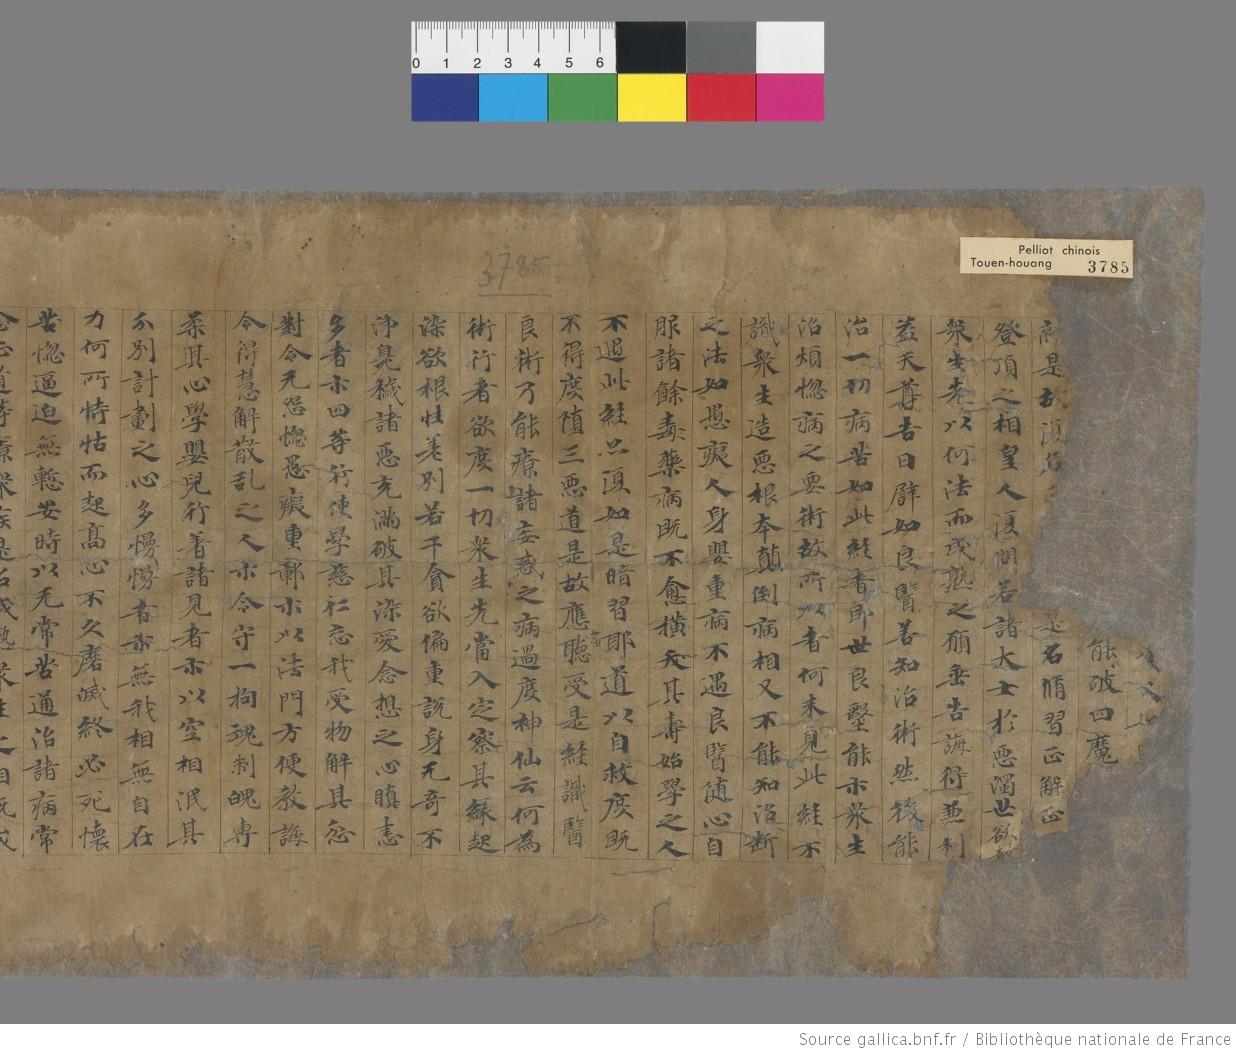 0 1 2 3 4 5 6
Pelliot chinois
Touen-houang 3785
3785
能破四魔
是故須
是名脩習正解正
登頂之相皇人復問若諸大士於惡濁世欲
衆生先以何法而成熟之願垂告誨得並利
益天尊告曰譬如良醫善知治術然後能
治一切病苦如此經者即世良毉能示衆生
治煩惚病之要術故所以者何未見此經不
識衆生造惡根本顛倒病相又不能知治斷
之法如愚癡人身嬰重病不遇良醫随心自
服諸餘毒藥病既不愈橫夭其壽始學之人
不遇此經亦復如是暗習耶道以自救度既
不得度墮三惡道是故應聽受是經識醫
良術乃能療諸妄惑之病過度神仙云何為
術行者欲度一切衆生先當入定察其蘇起
染欲根性差別若干貪欲偏重説身无奇不
淨臭穢諸惡充滿破其染愛念想之心瞋恚
多者示四等行使學慈仁忘我受物解其忿
對令无怨惚愚癡重鄣示以法門方便教誨
令得慧解散乱之人示令守一拘魂制魄専
柔其心學嬰兒行著諸見者示以空相泯其
分別計劃之心多慢慢者示無我相無自在
力何所恃怙而起髙心不久磨滅終必死懐
苦惚逼迫無蹔安時以无常苦通治諸病常
Source gallica.bnf.fr / Bibliothèque nationale de France